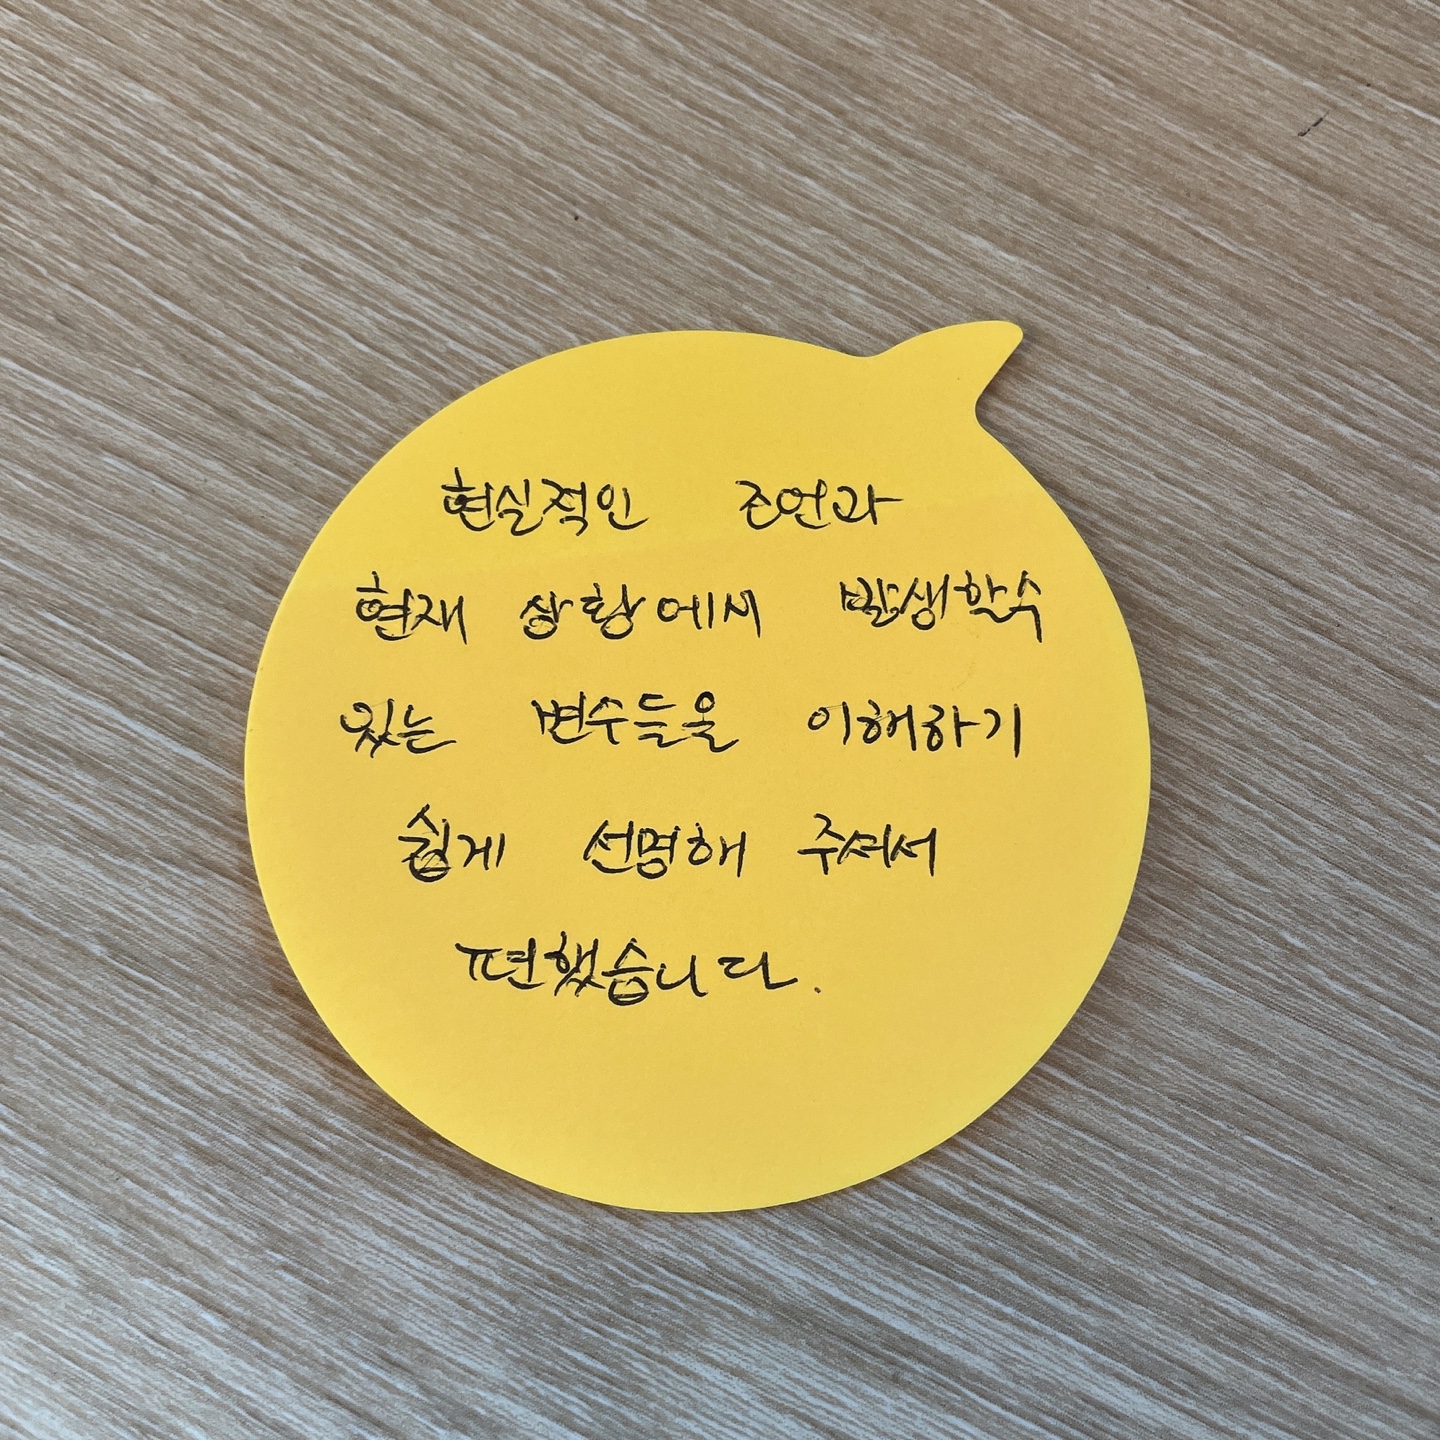 현실적인 조언과
현재 상황에서 발생할수
있는 변수들을 이해하기
쉽게 선명해 주셔서
편했습니다.